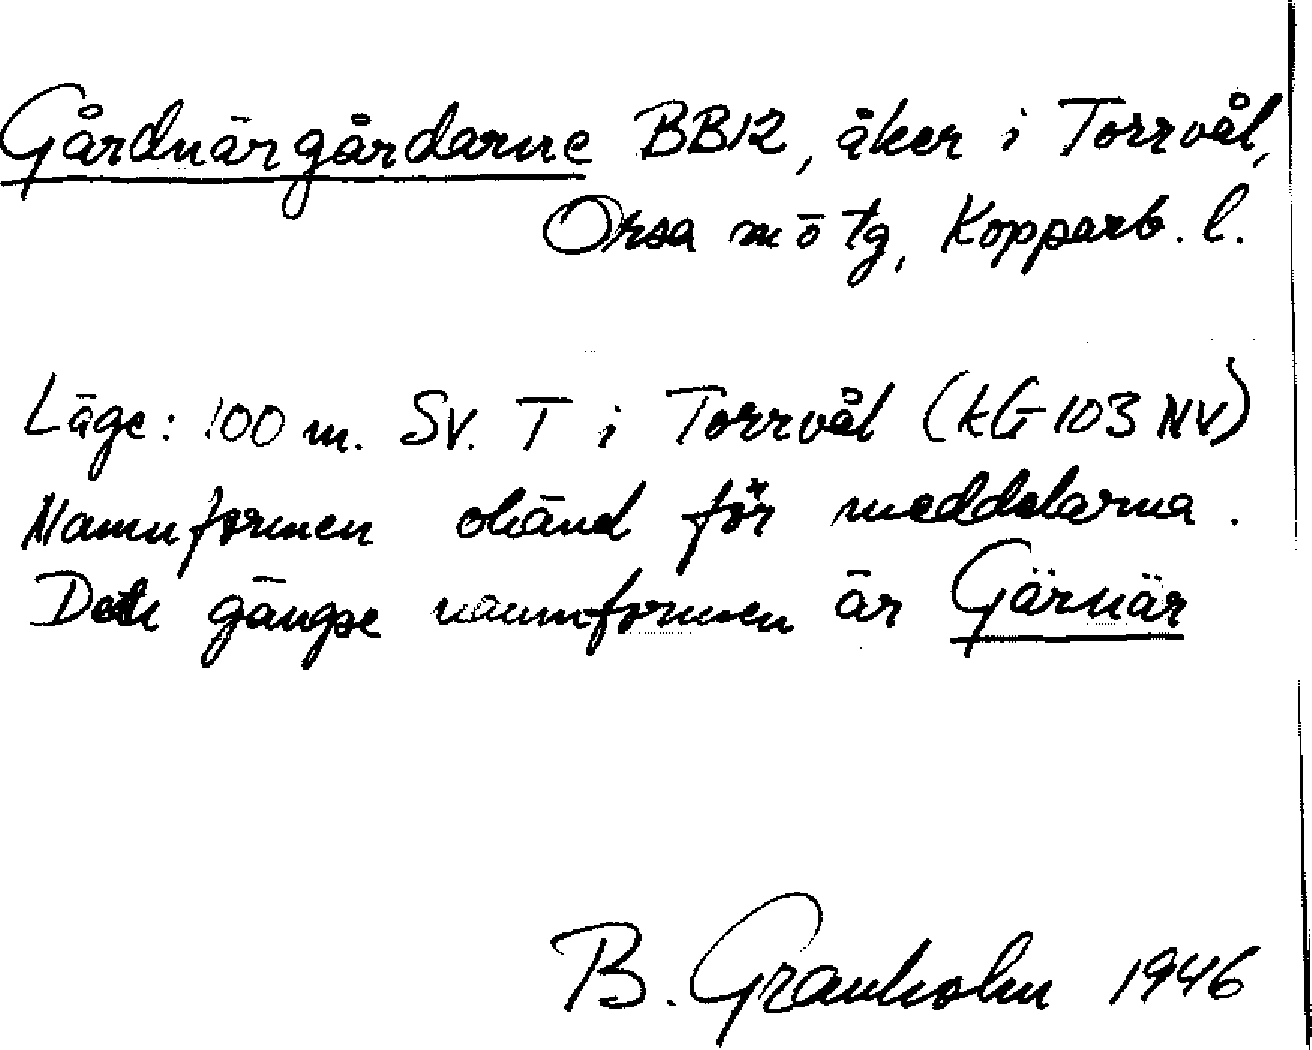 Gårdnärgårdarne BB12, åker i Torrvål,
Orsa mötg, Kopparb. l.
Läge: 100 m. SV. T i Torrvål (kG 103 NV)
Namnformen okänd för meddelarna.
Den gängse namnformen är Gärnär
B. Granholm 1946